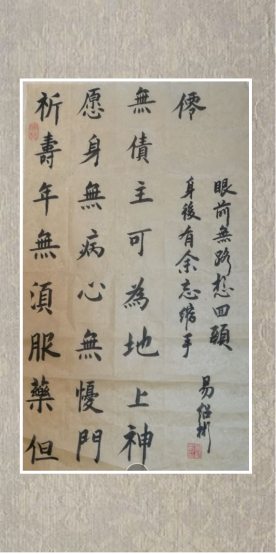 祈壽年無湏服藥但
愿身無病心無懮門
無債主可為地上神
僊
身後有余忘缩手
眼前無路想回頭
易绍彬